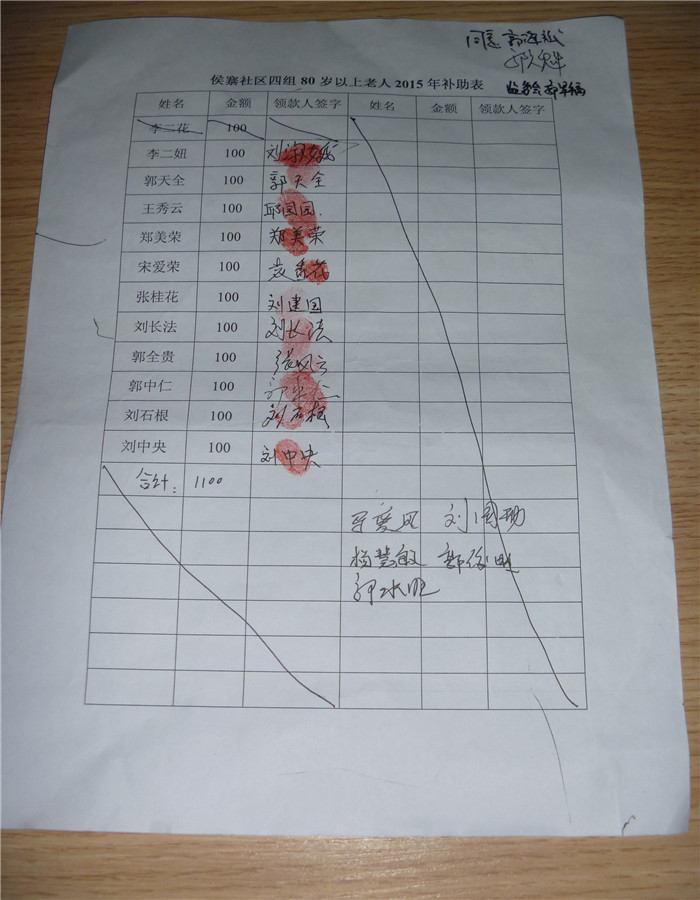 同意
侯寨社区四组 80 岁以上老人 2015 年补助表
姓名 金额 领款人签字 姓名 金额 领款人签字
李二花 100
李二妞 100
郭天全 100 郭天全
王秀云 100 邱园园.
郑美荣 100 郑美荣
宋爱荣 100
张桂花 100 刘建国
刘长法 100 刘长法
郭全贵 100 张风云
郭中仁 100
刘石根 100 刘石根
刘中央 100 刘中央
合计: 1100
刘国功
杨慧敏